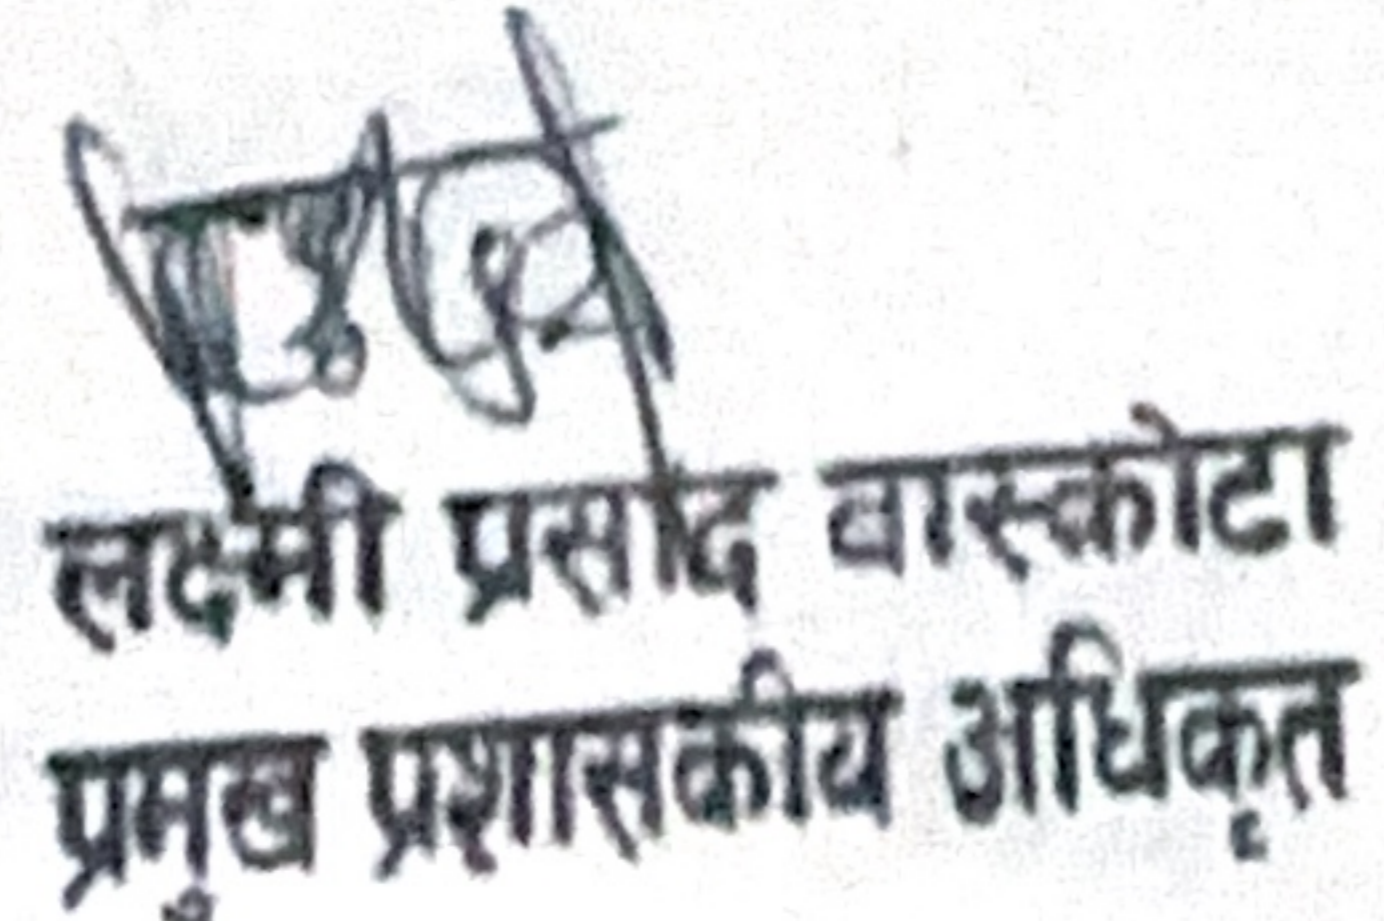 लक्ष्मी प्रसाद वास्कोटा
प्रमुख प्रशासकीय अधिकृत